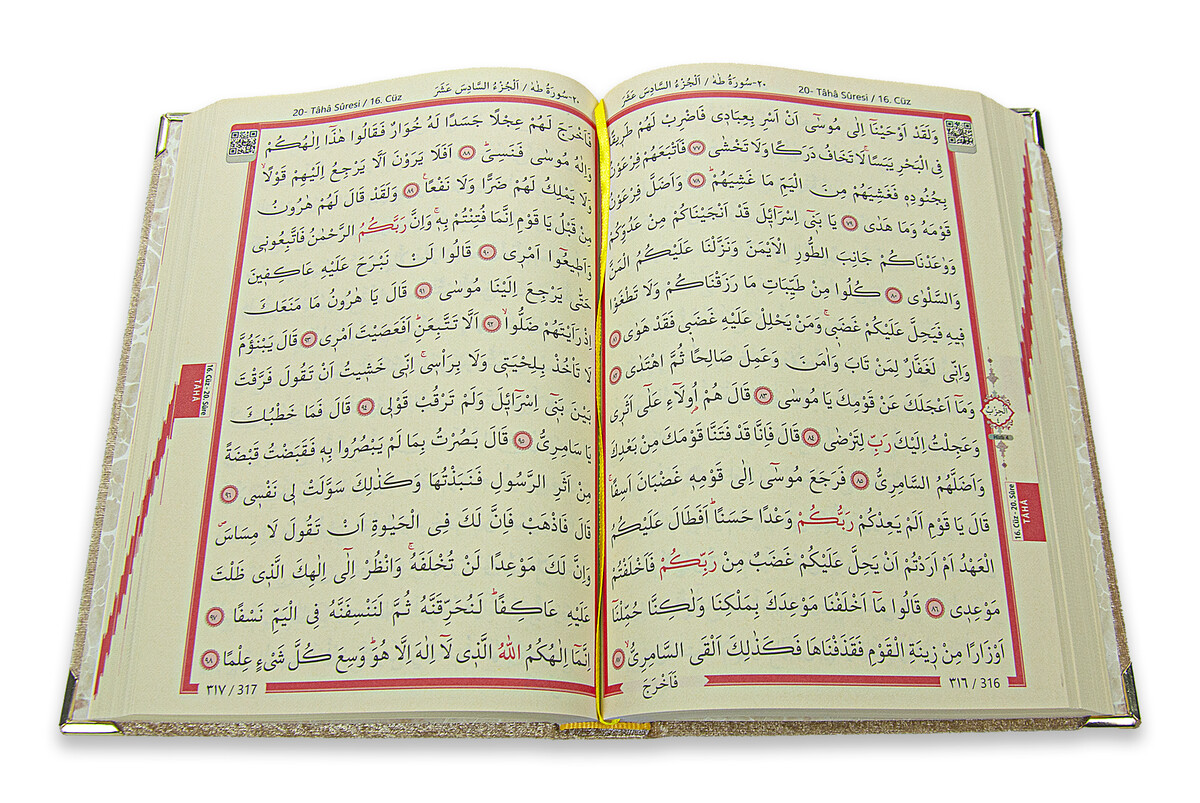 ٢٠-سُورَةُ طٰهٰ / اَلْجُزْءُ السَّادِسَ عَشَرَ
20- Tâhâ Sûresi / 16. Cüz
وَلَقَدْ اَوْحَيْنَٓا اِلٰى مُوسٰٓى اَنْ اَسْرِ بِعِبَادٖى فَاضْرِبْ لَهُمْ طَرٖيقًا
فِى الْبَحْرِ يَبَسًاۙ لَا تَخَافُ دَرَكًا وَلَا تَخْشٰى ﴿٧٧﴾ فَاَتْبَعَهُمْ فِرْعَوْنُ
بِجُنُودِهٖ فَغَشِيَهُمْ مِنَ الْيَمِّ مَا غَشِيَهُمْؕ ﴿٧٨﴾ وَاَضَلَّ فِرْعَوْنُ
قَوْمَهُ وَمَا هَدٰى ﴿٧٩﴾ يَا بَنٖٓى اِسْرَٓائٖلَ قَدْ اَنْجَيْنَاكُمْ مِنْ عَدُوِّكُمْ
وَوٰعَدْنَاكُمْ جَانِبَ الطُّورِ الْاَيْمَنَ وَنَزَّلْنَا عَلَيْكُمُ الْمَنَّ
وَالسَّلْوٰى ﴿٨٠﴾ كُلُوا مِنْ طَيِّبَاتِ مَا رَزَقْنَاكُمْ وَلَا تَطْغَوْا
فٖيهِ فَيَحِلَّ عَلَيْكُمْ غَضَبٖىۚ وَمَنْ يَحْلِلْ عَلَيْهِ غَضَبٖى فَقَدْ هَوٰى ﴿٨١﴾
وَاِنّٖى لَغَفَّارٌ لِمَنْ تَابَ وَاٰمَنَ وَعَمِلَ صَالِحًا ثُمَّ اهْتَدٰى ﴿٨٢﴾
وَمَٓا اَعْجَلَكَ عَنْ قَوْمِكَ يَا مُوسٰى ﴿٨٣﴾ قَالَ هُمْ اُو۬لَٓاءِ عَلٰٓى اَثَرٖى
وَعَجِلْتُ اِلَيْكَ رَبِّ لِتَرْضٰى ﴿٨٤﴾ قَالَ فَاِنَّا قَدْ فَتَنَّا قَوْمَكَ مِنْ بَعْدِكَ
وَاَضَلَّهُمُ السَّامِرِىُّ ﴿٨٥﴾ فَرَجَعَ مُوسٰٓى اِلٰى قَوْمِهٖ غَضْبَانَ اَسِفًاۚ
قَالَ يَا قَوْمِ اَلَمْ يَعِدْكُمْ رَبُّكُمْ وَعْدًا حَسَنًاؕ اَفَطَالَ عَلَيْكُمُ
الْعَهْدُ اَمْ اَرَدْتُمْ اَنْ يَحِلَّ عَلَيْكُمْ غَضَبٌ مِنْ رَبِّكُمْ فَاَخْلَفْتُمْ
مَوْعِدٖى ﴿٨٦﴾ قَالُوا مَٓا اَخْلَفْنَا مَوْعِدَكَ بِمَلْكِنَا وَلٰكِنَّا حُمِّلْنَٓا
اَوْزَارًا مِنْ زٖينَةِ الْقَوْمِ فَقَذَفْنَاهَا فَكَذٰلِكَ اَلْقَى السَّامِرِىُّۙ ﴿٨٧﴾
فَاَخْرَجَ
٣١٦ / 316
الحزب
Hizb 4
16. Cüz - 20. Sûre
TÂHÂ
٢٠-سُورَةُ طٰهٰ / اَلْجُزْءُ السَّادِسَ عَشَرَ
20- Tâhâ Sûresi / 16. Cüz
فَاَخْرَجَ لَهُمْ عِجْلًا جَسَدًا لَهُ خُوَارٌ فَقَالُوا هٰذَٓا اِلٰهُكُمْ
وَاِلٰهُ مُوسٰى فَنَسِىَؕ ﴿٨٨﴾ اَفَلَا يَرَوْنَ اَلَّا يَرْجِعُ اِلَيْهِمْ قَوْلًاۙ
وَلَا يَمْلِكُ لَهُمْ ضَرًّا وَلَا نَفْعًا ﴿٨٩﴾ وَلَقَدْ قَالَ لَهُمْ هٰرُونُ
مِنْ قَبْلُ يَا قَوْمِ اِنَّمَا فُتِنْتُمْ بِهٖۚ وَاِنَّ رَبَّكُمُ الرَّحْمٰنُ فَاتَّبِعُونٖى
وَاَطٖيعُٓوا اَمْرٖى ﴿٩٠﴾ قَالُوا لَنْ نَبْرَحَ عَلَيْهِ عَاكِفٖينَ
حَتّٰى يَرْجِعَ اِلَيْنَا مُوسٰى ﴿٩١﴾ قَالَ يَا هٰرُونُ مَا مَنَعَكَ
اِذْ رَاَيْتَهُمْ ضَلُّواۙ ﴿٩٢﴾ اَلَّا تَتَّبِعَنِؕ اَفَعَصَيْتَ اَمْرٖى ﴿٩٣﴾ قَالَ يَبْنَؤُمَّ
لَا تَأْخُذْ بِلِحْيَتٖى وَلَا بِرَأْسٖىۚ اِنّٖى خَشٖيتُ اَنْ تَقُولَ فَرَّقْتَ
بَيْنَ بَنٖٓى اِسْرَٓائٖلَ وَلَمْ تَرْقُبْ قَوْلٖى ﴿٩٤﴾ قَالَ فَمَا خَطْبُكَ
يَا سَامِرِىُّ ﴿٩٥﴾ قَالَ بَصُرْتُ بِمَا لَمْ يَبْصُرُوا بِهٖ فَقَبَضْتُ قَبْضَةً
مِنْ اَثَرِ الرَّسُولِ فَنَبَذْتُهَا وَكَذٰلِكَ سَوَّلَتْ لٖى نَفْسٖى ﴿٩٦﴾
قَالَ فَاذْهَبْ فَاِنَّ لَكَ فِى الْحَيٰوةِ اَنْ تَقُولَ لَا مِسَاسَ
وَاِنَّ لَكَ مَوْعِدًا لَنْ تُخْلَفَهُۚ وَانْظُرْ اِلٰٓى اِلٰهِكَ الَّذٖى ظَلْتَ
عَلَيْهِ عَاكِفًاؕ لَنُحَرِّقَنَّهُ ثُمَّ لَنَنْسِفَنَّهُ فِى الْيَمِّ نَسْفًا ﴿٩٧﴾
اِنَّمَٓا اِلٰهُكُمُ اللّٰهُ الَّذٖى لَٓا اِلٰهَ اِلَّا هُوَؕ وَسِعَ كُلَّ شَىْءٍ عِلْمًا ﴿٩٨﴾
٣١٧ / 317
16. Cüz - 20. Sûre
TÂHÂ